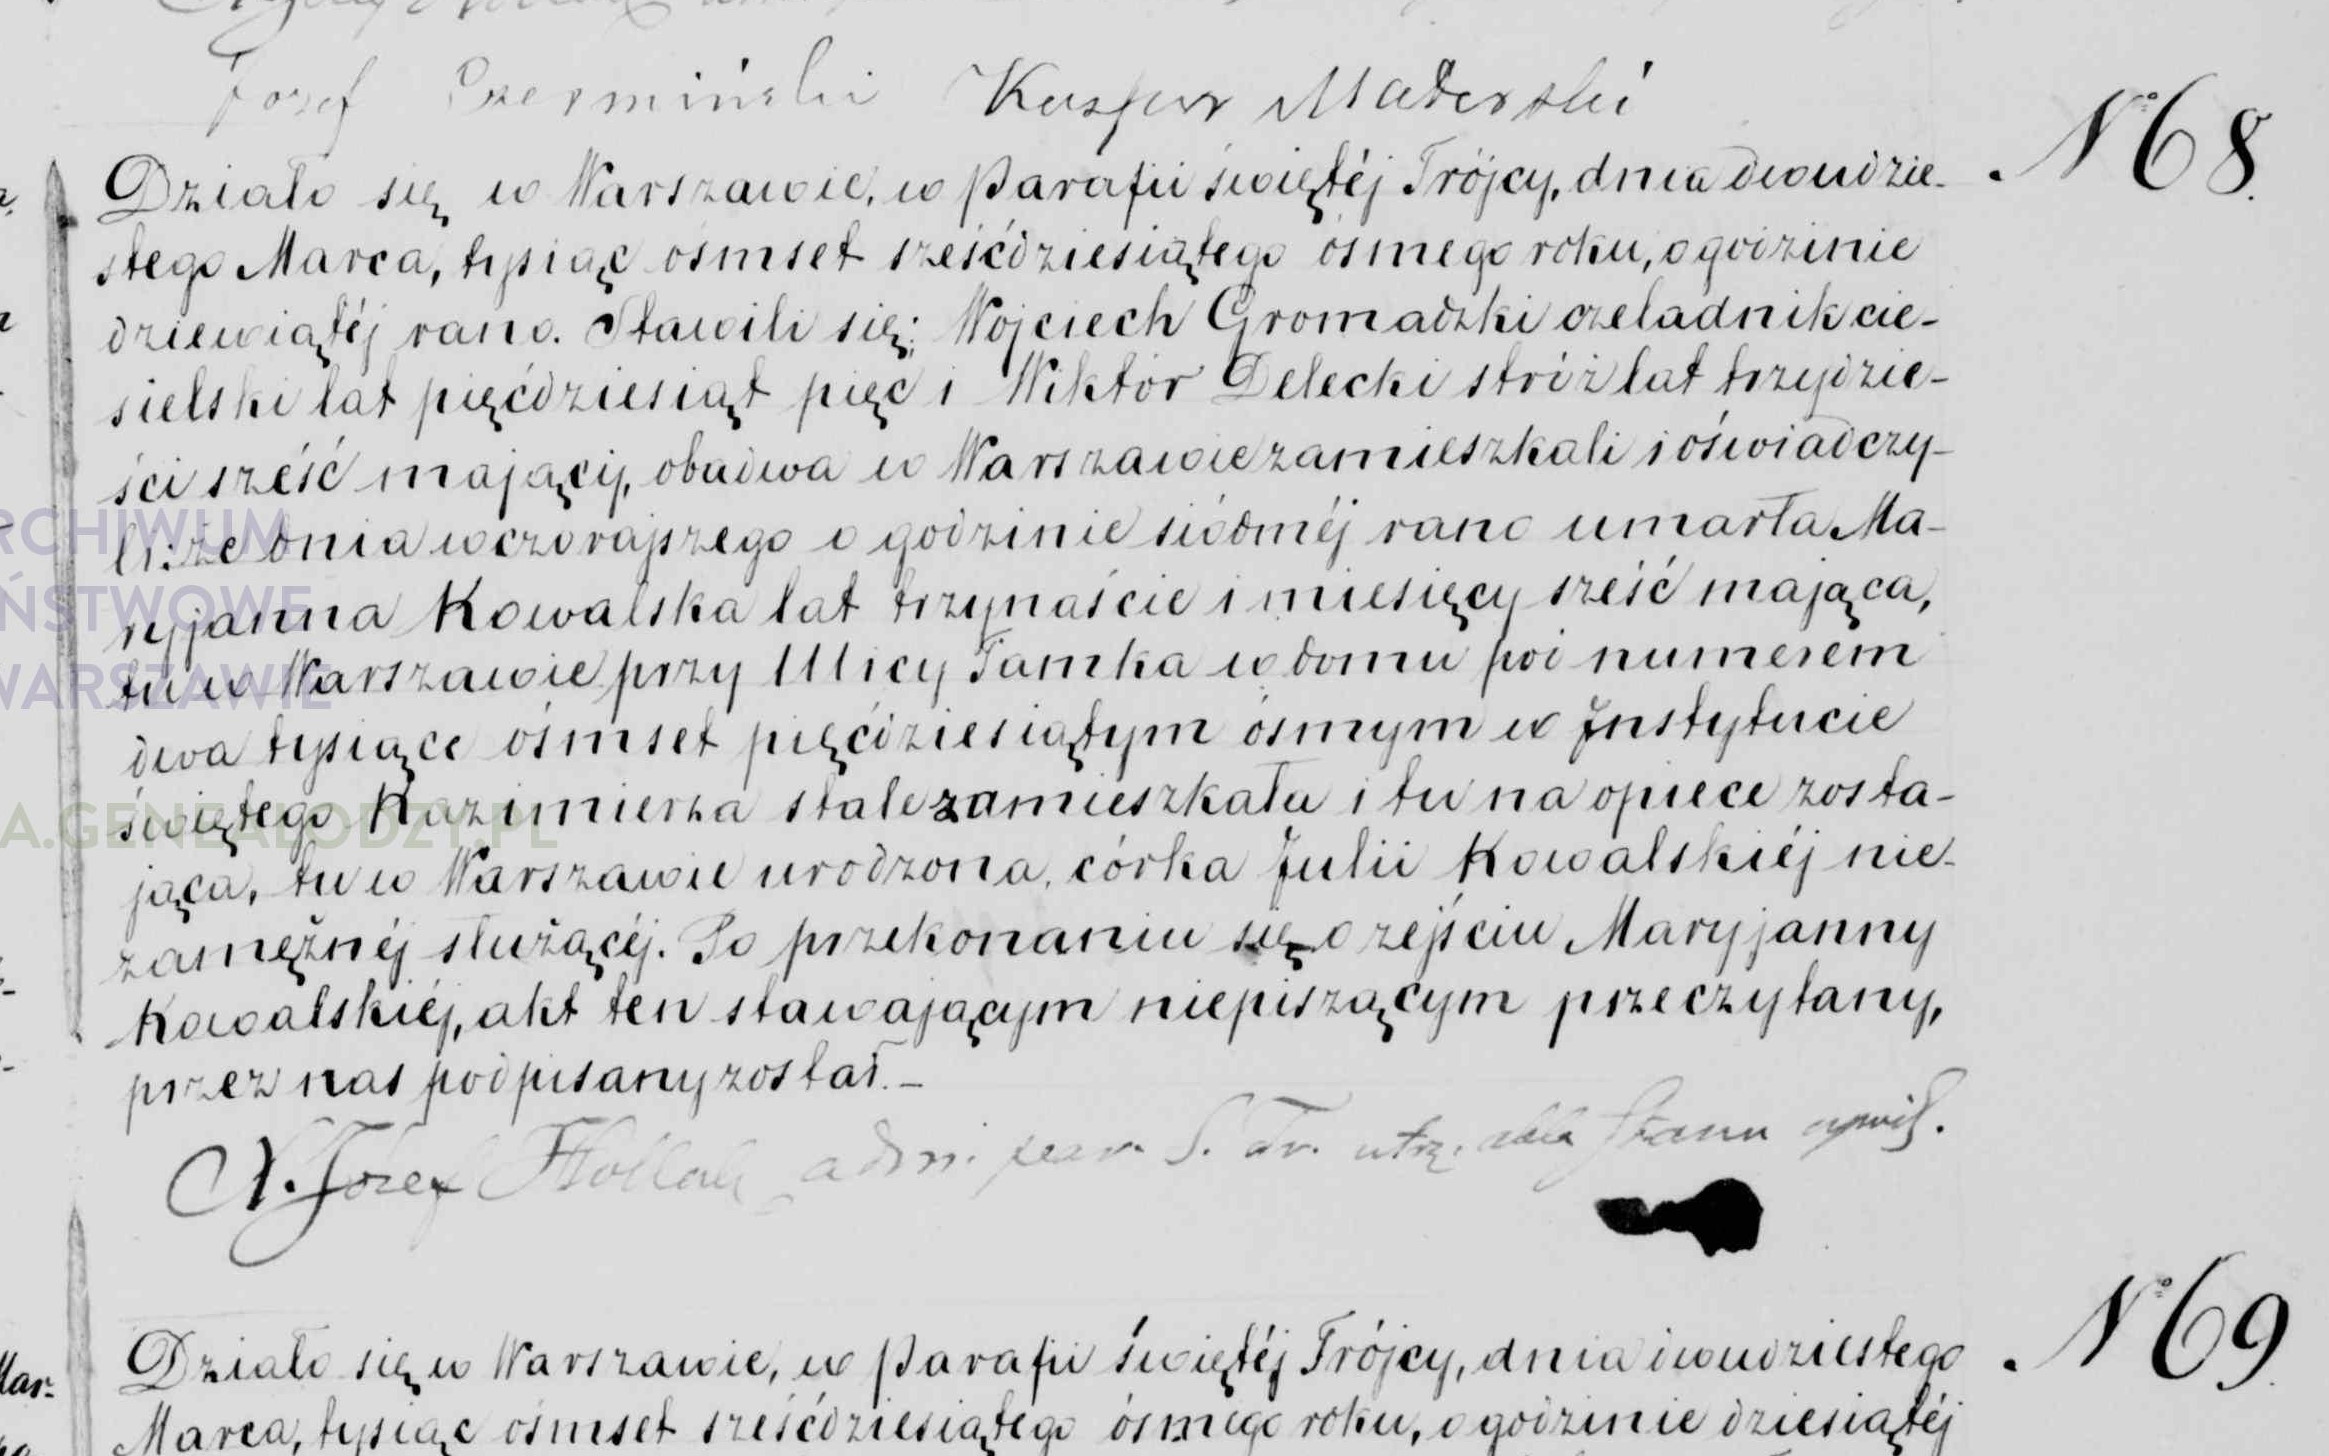 Józef Czermiński Kasper Materski
N° 68.
Działo się w Warszawie, w Parafii świętéj Trójcy, dnia dwudzie-
stego Marca, tysiąc ośmset sześćdziesiątego ósmego roku, o godzinie
dziewiątéj rano. Stawili się: Wojciech Gromadzki czeladnik cie-
sielski lat pięćdziesiąt pięć i Wiktor Delecki stróż lat trzydzie-
ści sześć mający, obadwa w Warszawie zamieszkali i oświadczy-
li: że dnia wczorajszego o godzinie siódméj rano umarła Ma-
ryjanna Kowalska lat trzynaście i miesięcy sześć mająca,
tu w Warszawie przy Ulicy Tamka w domu pod numerem
dwa tysiące ośmset pięćdziesiątym ósmym w Instytucie
świętego Kazimierza stale zamieszkała i tu na opiece zosta-
jąca, tu w Warszawie urodzona, córka Julii Kowalskiéj nie-
zamężnéj służącéj. Po przekonaniu się o zejściu Maryjanny
Kowalskiéj, akt ten stawającym niepiszącym przeczytany,
przez nas podpisany został. –
X. Józef Hollak adm. par. S. Tr. utrz. akta Stanu cywil.
N° 69.
Działo się w Warszawie, w Parafii świętéj Trójcy, dnia dwudziestego
Marca, tysiąc ośmset sześćdziesiątego ósmego roku, o godzinie dziesiątéj
Mar-
ARCHIWUM
PAŃSTWOWE
WARSZAWIE
A.GENEALODZY.PL